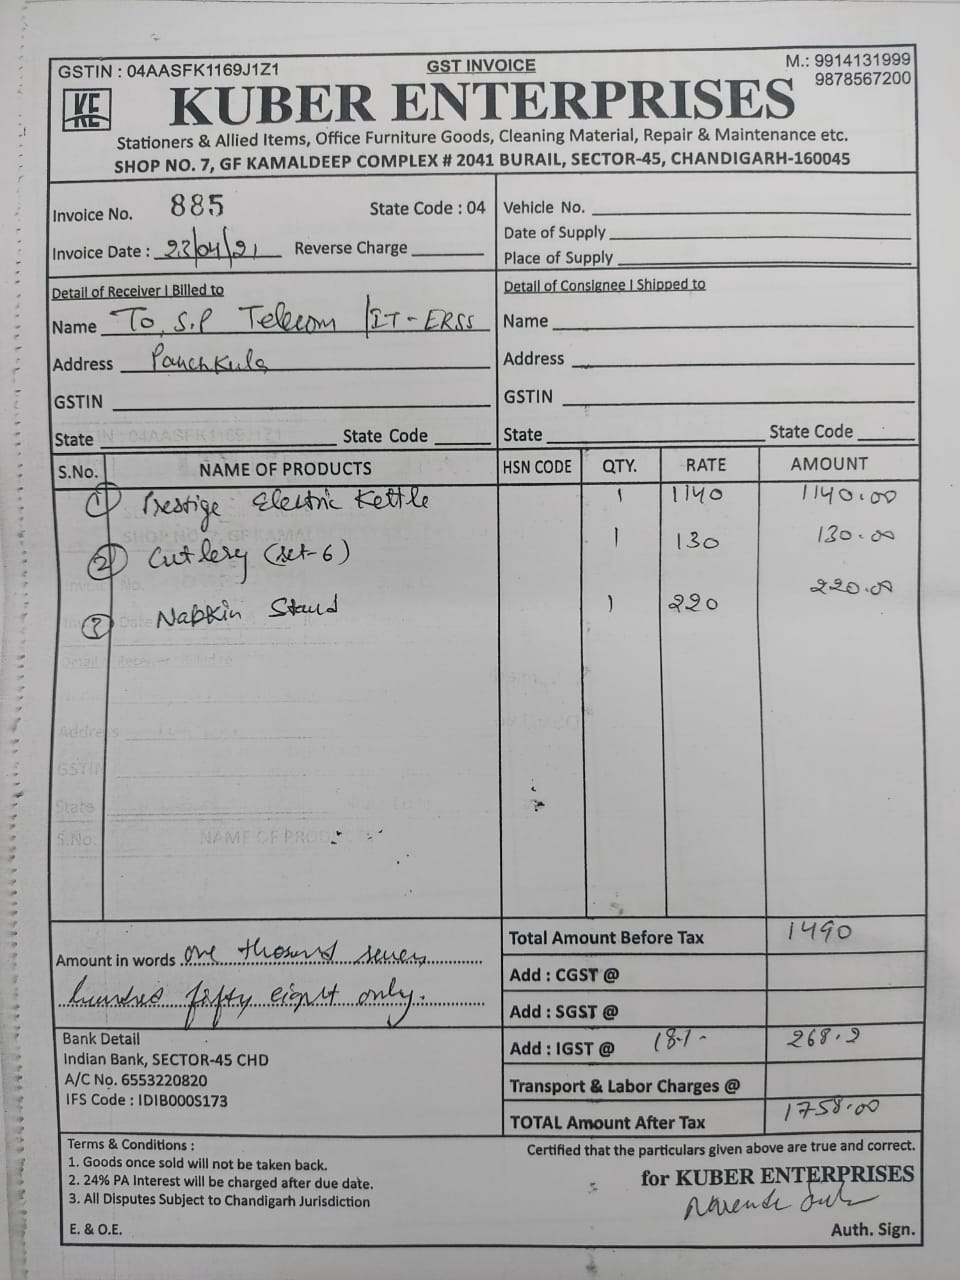 GSTIN : 04AASFK1169J1Z1
GST INVOICE
M.: 9914131999
9878567200
KE
KE
KUBER ENTERPRISES
Stationers & Allied Items, Office Furniture Goods, Cleaning Material, Repair & Maintenance etc.
SHOP NO. 7, GF KAMALDEEP COMPLEX # 2041 BURAIL, SECTOR-45, CHANDIGARH-160045
Invoice No. 885 State Code : 04
Invoice Date : 23/04/21 Reverse Charge
Vehicle No.
Date of Supply
Place of Supply
Detail of Receiver | Billed to
Name To, S.P Telecom /IT-ERSS
Address Panchkula
GSTIN
State State Code
Detail of Consignee | Shipped to
Name
Address
GSTIN
State State Code
S.No. NAME OF PRODUCTS HSN CODE QTY. RATE AMOUNT
1 Prestige Electric Kettle 1 1140 1140.00
2 Cutlery (set-6) 1 130 130.00
3 Napkin Stand 1 220 220.00
Amount in words one thousnd seven
hundred fifty eight only.
Total Amount Before Tax 1490
Add : CGST @
Add : SGST @
Add : IGST @ 18% 268.2
Transport & Labor Charges @
TOTAL Amount After Tax 1758.00
Bank Detail
Indian Bank, SECTOR-45 CHD
A/C No. 6553220820
IFS Code : IDIB000S173
Terms & Conditions :
1. Goods once sold will not be taken back.
2. 24% PA Interest will be charged after due date.
3. All Disputes Subject to Chandigarh Jurisdiction
E. & O.E.
Certified that the particulars given above are true and correct.
for KUBER ENTERPRISES
Auth. Sign.